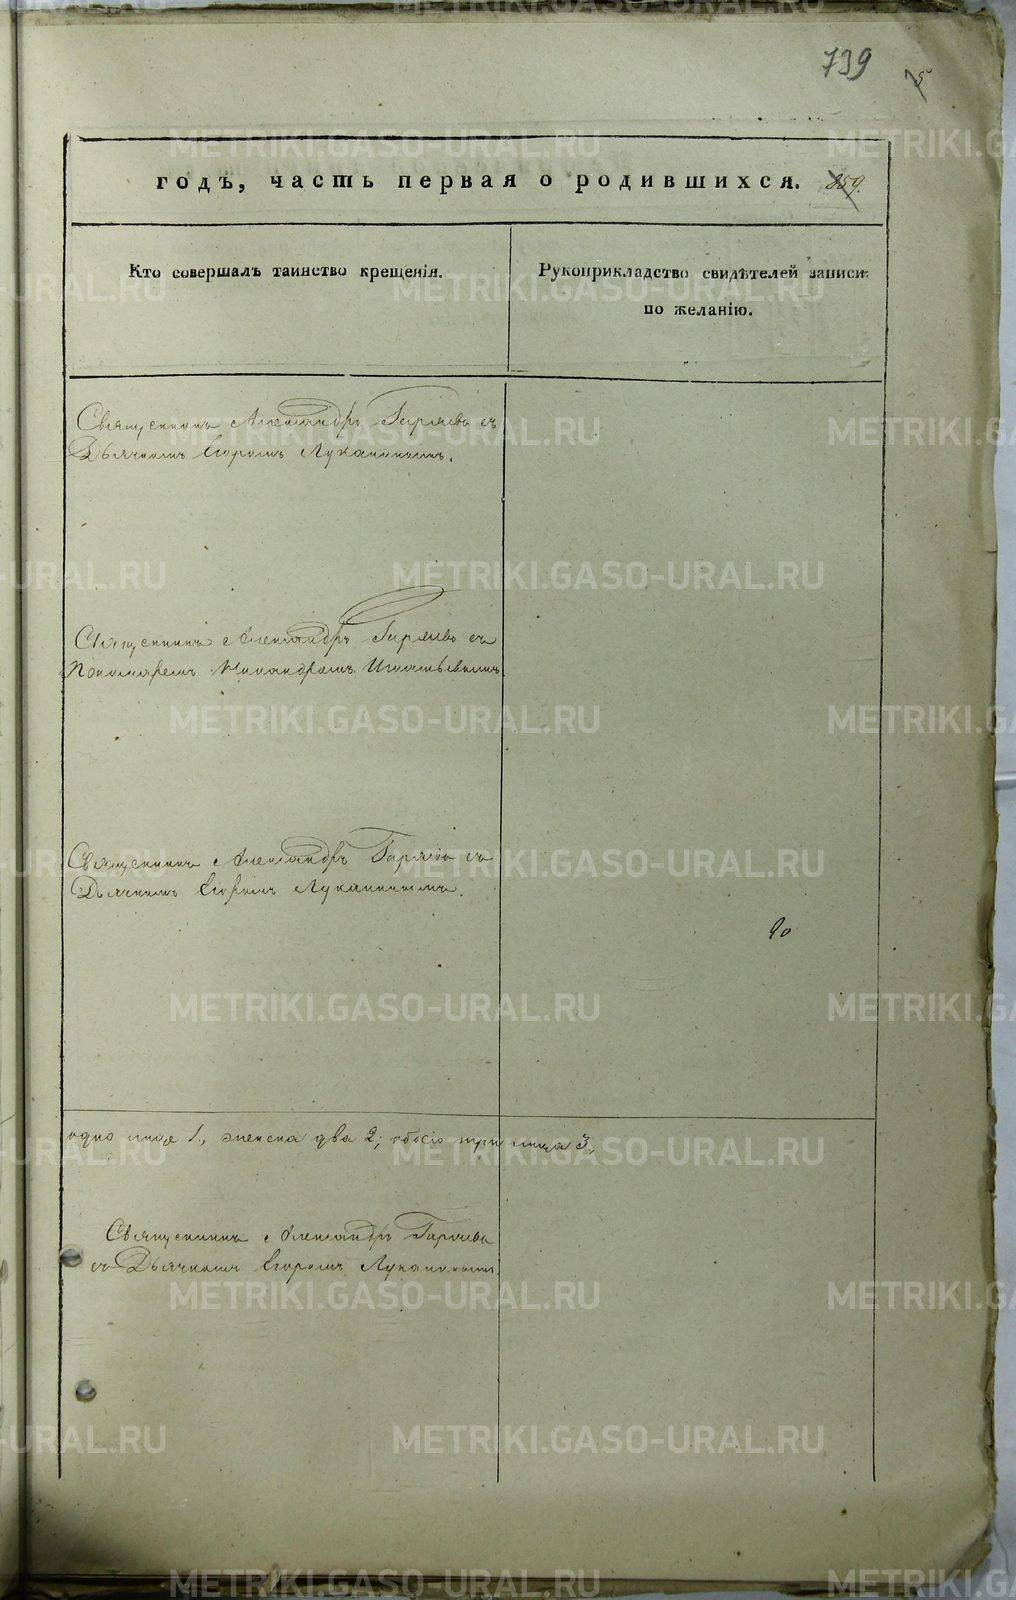 739
5
годъ, часть первая о родившихся. 859.
Кто совершалъ таинство крещенія.
Рукоприкладство свидѣтелей записи
по желанію.
Священникъ Александръ Гаряевъ съ
Дьячкомъ Егоромъ Луканинымъ.
Священникъ Александръ Гаряевъ съ
Пономаремъ Никандромъ Игнатьевымъ
Священникъ Александръ Гаряевъ съ
Дьячкомъ Егоромъ Луканинымъ.
одно лице 1, женска два 2; обоего три лица 3.
Священникъ Александръ Гаряевъ
съ Дьячкомъ Егоромъ Луканинымъ
METRIKI.GASO-URAL.RU